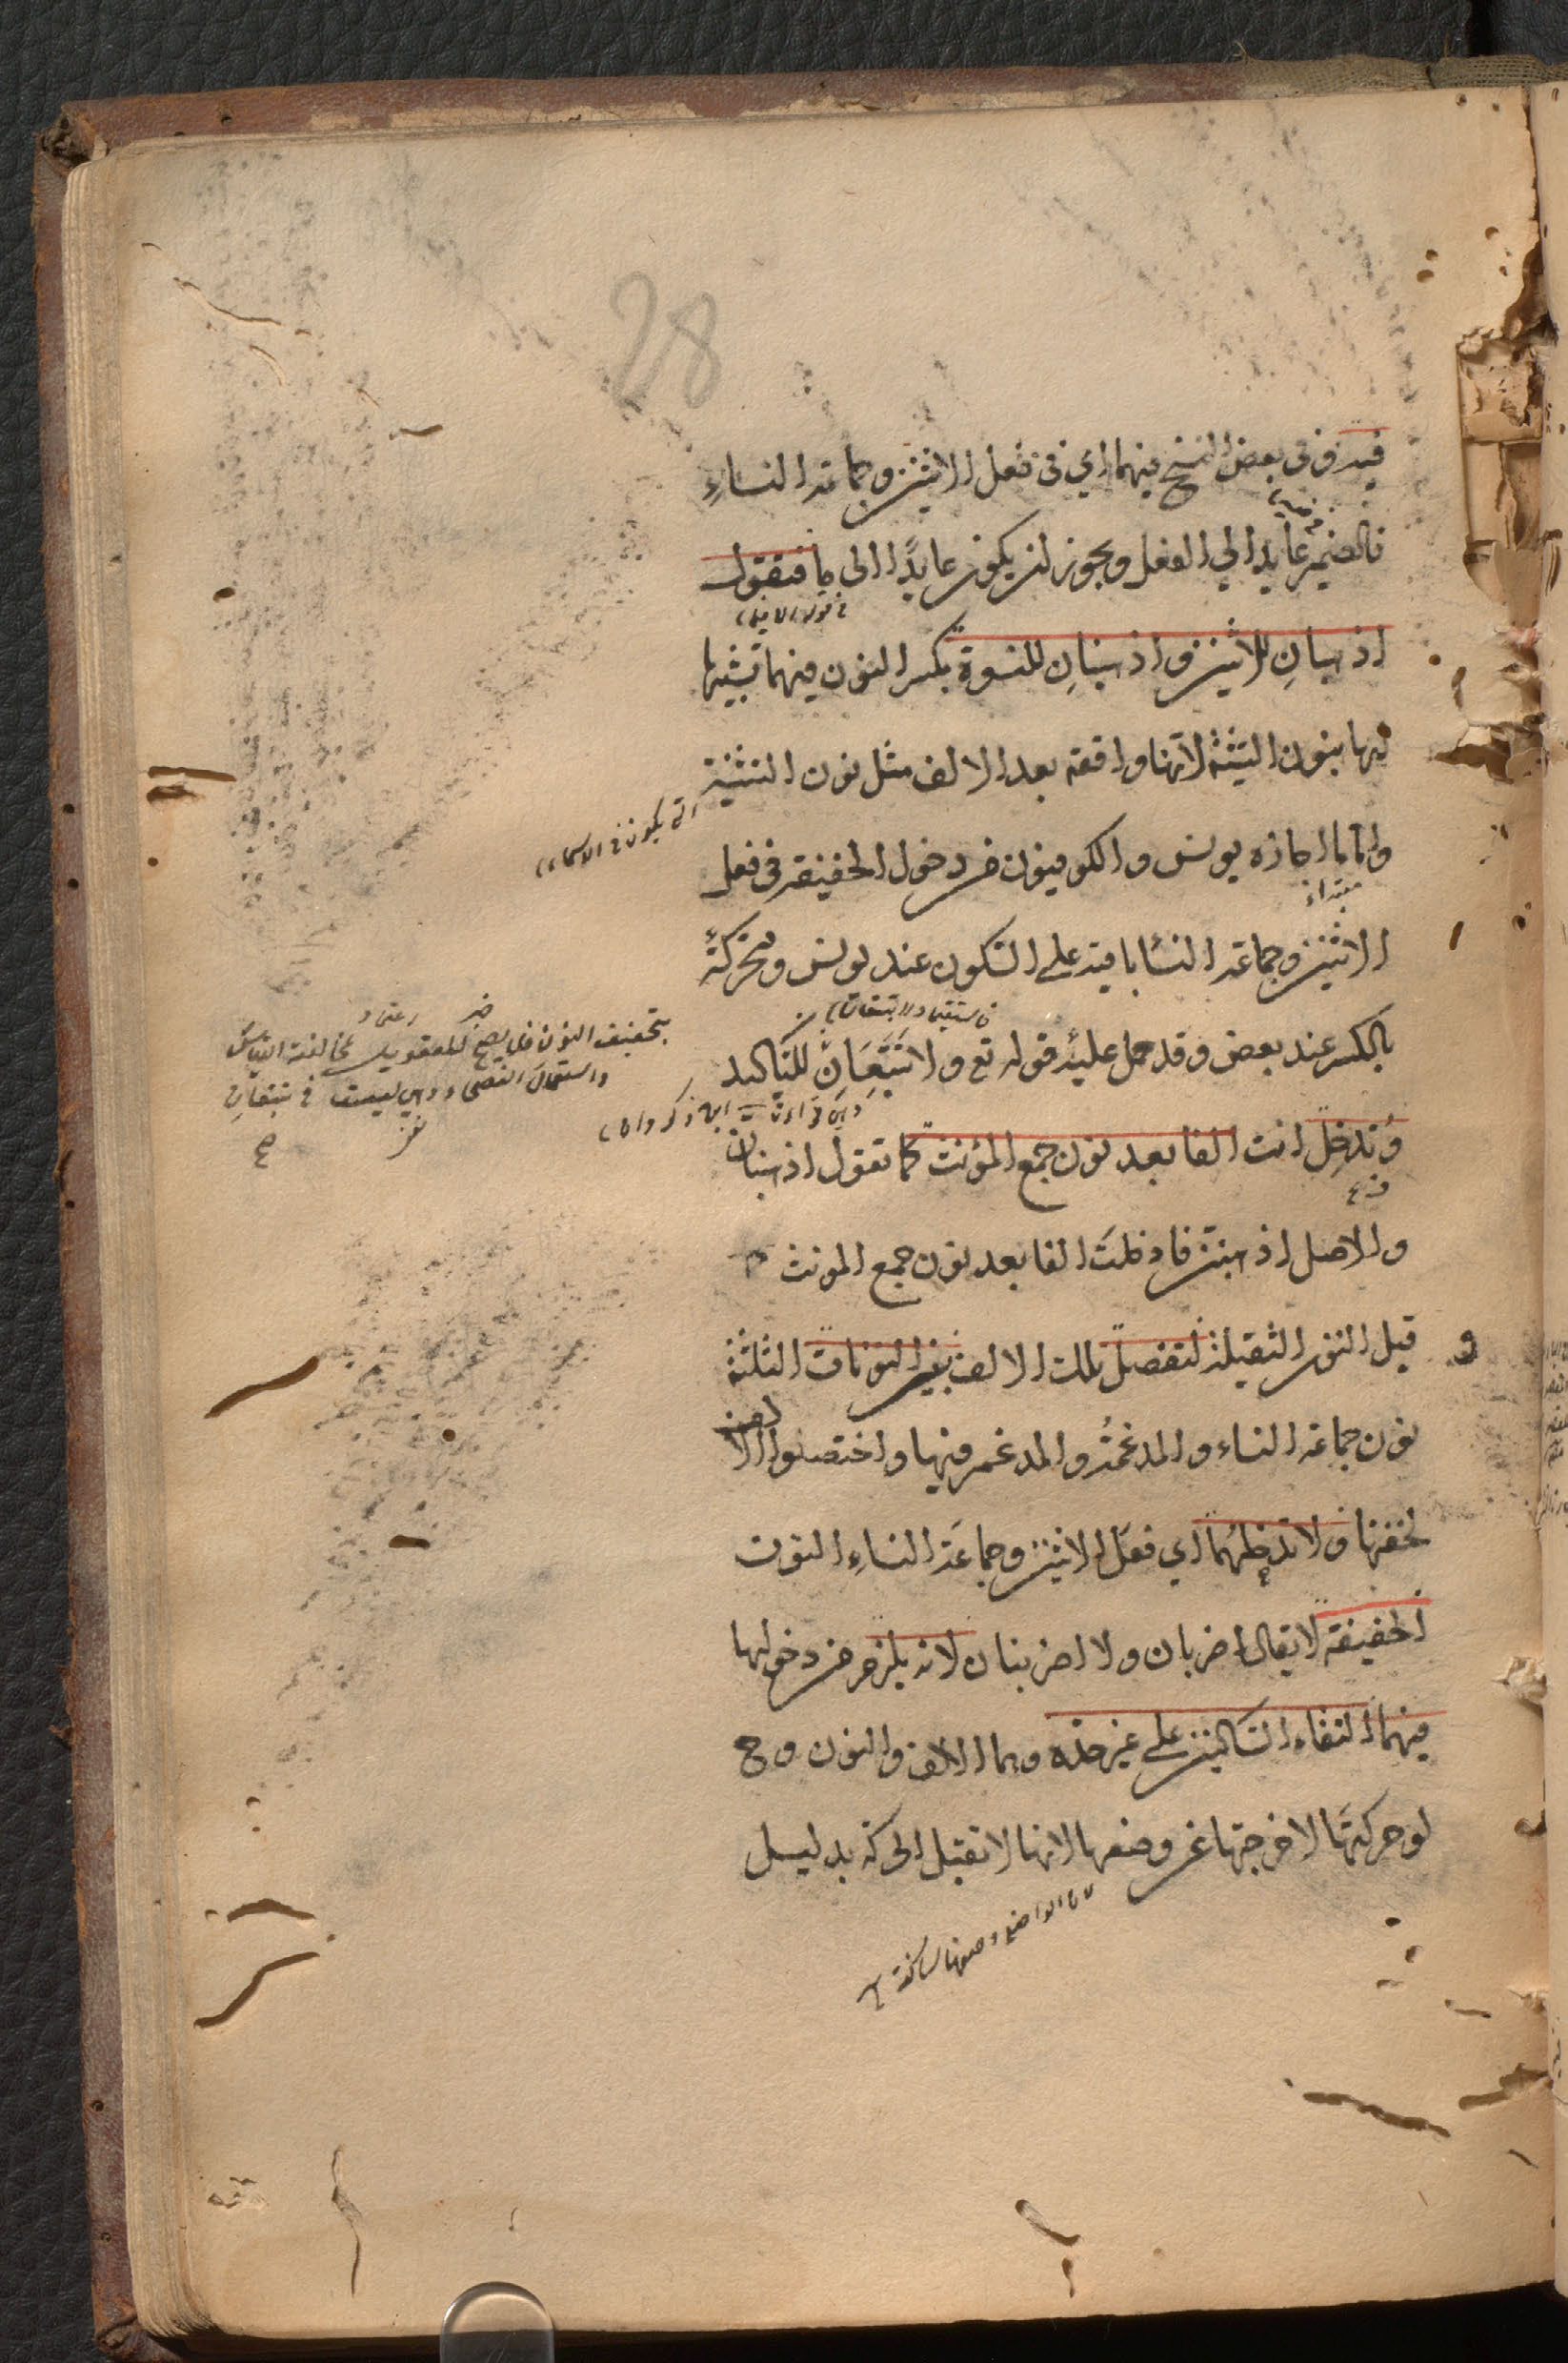 28
فيه وفي بعض النسخ فيهما اي في فعل الاثنين وجماعة النساء
فالضمير عايد الي الفعل ويجوز ان يكون عايدًا الى ما فتقول
اذهبانِّ للاثنين واذهبنانِّ للنسوة بكسر النون فيهما تشبيها
لها بنون التثنية لانها واقعة بعد الالف مثل نون التثنية
واما ما اجازه يونس والكوفيون من دخول الخفيفة في فعل
مبتداء
الاثنين وجماعة النسا باقية على السكون عند يونس ومتحركةً
بالكسر عند بعض وقد حمل عليه قوله تع ولا تتبعانِ للتاكيد
بتخفيف النون فلا يصح
وتدخل انت الفا بعد نون جمع المؤنث كما تقول اذهبنان
والاصل اذهبنن فادخلتَ الفا بعد نون جمع المونث
قبل النون الثقيلة لتفصل تلك الالف بين النونات الثلثة
نون جماعة النساء والمدغمة والمدغم فيها واختصوا الالف
لخفتها ولا تدخلهما اي فعل الاثنين وجماعة النساء النون
الخفيفة لا يقال اضربان ولا اضربنان لانه يلزم من دخولها
فيهما التقاء الساكنين على غير حده وهما الالف والنون وح
لو حركتها لاخرجتها عن وضعها لانها لا تقبل الحركة بدليل
لان الواضع وضعها ساكنة